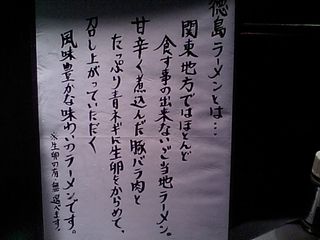 徳島ラーメンとは…
関東地方ではほとんど
食す事の出来ないご当地ラーメン。
甘辛く煮込んだ豚バラ肉と
たっぷり青ネギに生卵をからめて、
召し上がっていただく
風味豊かな味わいのラーメンです。
※生卵の有無選べます。